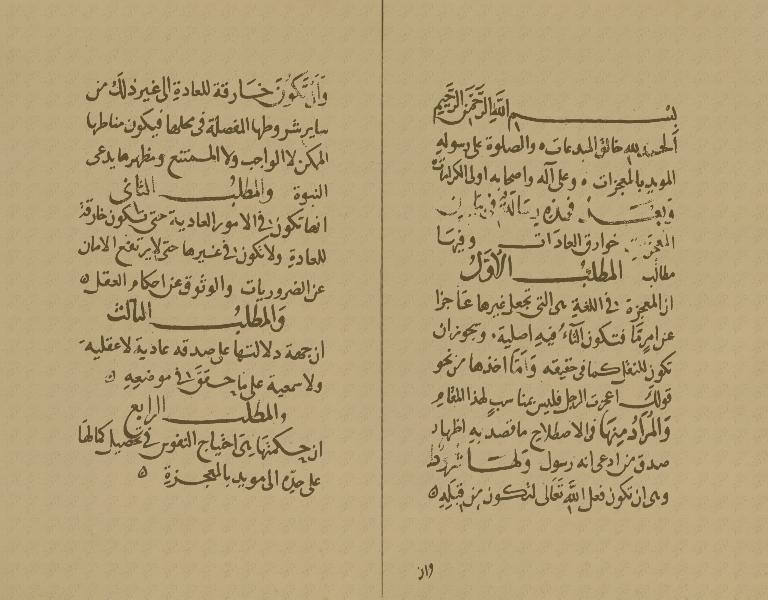 بسم الله الرحمن الرحيم
الحمد لله خالق المبدعات والصلوة على رسوله
المويد بالمعجزات وعلى آله واصحابه اولى الكرامات
وبعد فهذه رسالة في بيان
المعجزة خوارق العادات وفيها
مطالب المطلب الاول
ان المعجزة في اللغة هى التى تجعل غيرها عاجزا
عن امر ما فتكون التاء فيه اصلية ويجوز ان
تكون للنقل كما في حقيقه واما اخذها من نحو
قولك اعجزت الرجل فليس بمناسب لهذا المقام
والمراد منها في الاصطلاح ما قصد به اظهار
صدق من ادعى انه رسول ولها شروط
وهى ان تكون فعل الله تعالى لتكون من قبله
وان
وان تكون خارقة للعادة الى غير ذلك من
ساير شروطها المفصلة في محلها فيكون مناطها
الممكن لا الواجب ولا الممتنع ومظهرها يدعى
النبوة والمطلب الثانى
انها تكون في الامور العادية حتى تكون خارقة
للعادة ولا تكون في غيرها حتى لا يرتفع الامان
عن الضروريات والوثوق عن احكام العقل
والمطلب الثالث
ان جهة دلالتها على صدقه عادية لا عقلية
ولا سمعية على ما حقق في موضعه
والمطلب الرابع
ان حكمتها هى احتياج النفوس في تحصيل كمالها
على حده الى مويد بالمعجزة